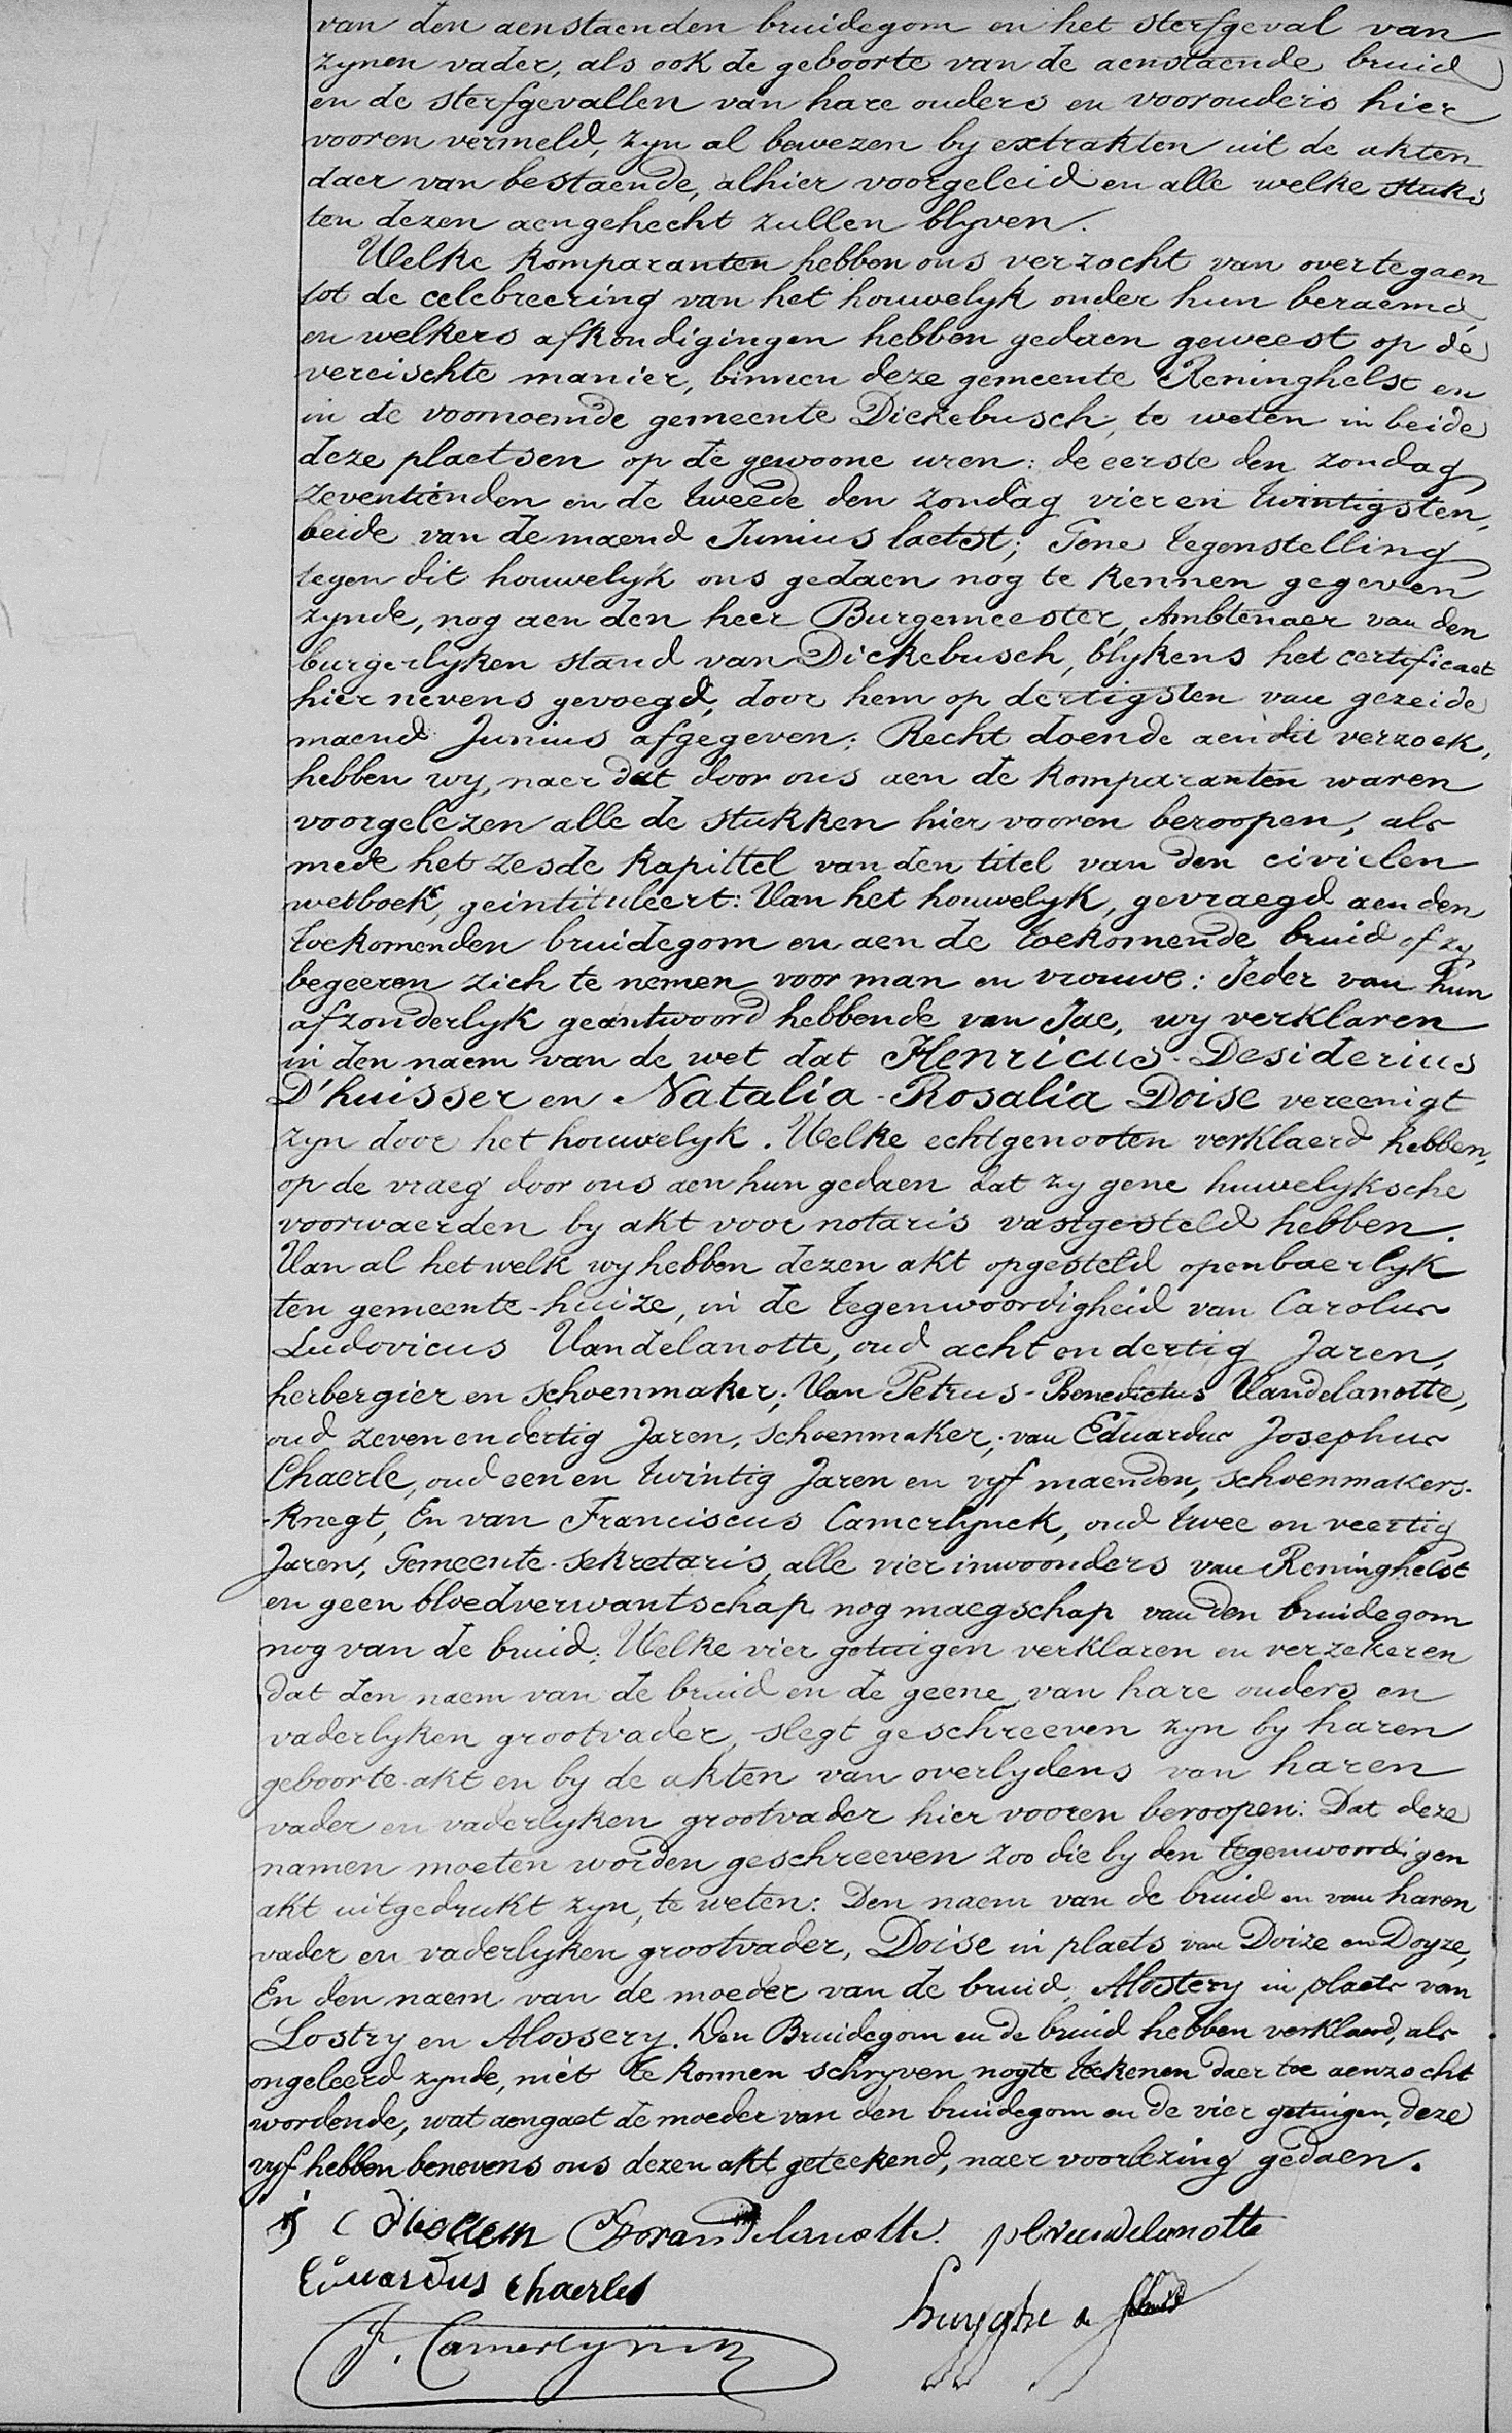 van den aenstaenden bruidegom en het sterfgeval van
zynen vader, als ook de geboorte van de aenstaende bruid
en de sterfgevallen van hare ouders en voorouders hier
vooren vermeld, zyn al bewezen by extrakten uit de akten
daer van bestaende, alhier voorgeleid en alle welke stuks
ten dezen aengehecht zullen blyven.
Welke komparanten hebben ons verzocht van overtegaen
tot de celebreering van het houwelyk onder hun beraemd,
en welkers afkondigingen hebben gedaen geweest op de
vereischte manier, binnen deze gemeente Reninghelst en
in de voornoemde gemeente Dickebusch, te weten in beide
deze plaetsen op de gewoone uren: de eerste den zondag
zeventienden en de tweede den zondag vier en twintigsten,
beide van de maend Junius laetst; Gene tegenstelling
tegen dit houwelyk ons gedaen nog te kennen gegeven
zynde, nog aen den heer Burgemeester, Ambtenaer van den
burgerlyken stand van Dickebusch, blykens het certificaet
hier nevens gevoegd, door hem op dertigsten van gezeide
maend Junius afgegeven: Recht doende aen dit verzoek,
hebben wy, naer dat door ons aen de komparanten waren
voorgelezen alle de stukken hier vooren beroopen, als
mede het zesde kapittel van den titel van den civielen
wetboek, geintituleert: Van het houwelyk, gevraegd aen den
toekomenden bruidegom en aen de toekomende bruid of zy
begeeren zich te nemen voor man en vrouwe: Ieder van hun
afzonderlyk geantwoord hebbende van Jae, wy verklaren
in den naem van de wet dat Henricus-Desiderius
D'huisser en Natalia-Rosalia Doise vereenigt
zyn door het houwelyk. Welke echtgenooten verklaerd hebben,
op de vraeg door ons aen hun gedaen dat zy gene huwelyksche
voorwaerden by akt voor notaris vastgesteld hebben.
Van al het welk wy hebben dezen akt opgesteld openbaerlyk
ten gemeente-huize, in de tegenwoordigheid van Carolus
Ludovicus Vandelanotte, oud acht en dertig Jaren,
herbergier en schoenmaker; Van Petrus-Benedictus Vandelanotte,
oud zeven en dertig Jaren, schoenmaker; van Eduardus Josephus
Chaerle, oud een en twintig Jaren en vyf maenden, schoenmakers-
-knegt, En van Franciscus Camerlynck, oud twee en veertig
Jaren, Gemeente-sekretaris, alle vier inwoonders van Reninghelst
en geen bloedverwantschap nog maegschap van den bruidegom
nog van de bruid: Welke vier getuigen verklaren en verzekeren
dat den naem van de bruid en de geene van hare ouders en
vaderlyken grootvader, slegt geschreeven zyn by haren
geboorte-akt en by de akten van overlydens van haren
vader en vaderlyken grootvader hier vooren beroopen: Dat deze
namen moeten worden geschreeven zoo die by den tegenwoordigen
akt uitgedrukt zyn, te weten: Den naem van de bruid en van haren
vader en vaderlyken grootvader, Doise in plaets van Doize en Doyze,
En den naem van de moeder van de bruid, Alostery in plaets van
Lostry en Alossery. Den Bruidegom en de bruid hebben verklaerd, als
ongeleerd zynde, niet te konnen schryven nogte teekenen daer toe aenzocht
wordende, wat aengaet de moeder van den bruidegom en de vier getuigen, deze
vyf hebben benevens ons dezen akt geteekend, naer voorlezing gedaen.
vandelanotte. vandelanotte
Eduardus Chaerles
F. Camerlynck